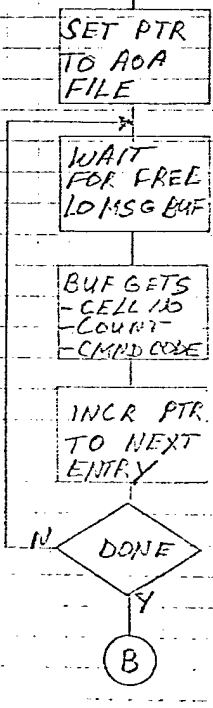 SET PTR
TO AOA
FILE
WAIT
FOR FREE
LO MSG BUF
BUF GETS
- CELL NO
- COUNT
- CMND CODE
INCR PTR
TO NEXT
ENTRY
N
DONE
Y
B